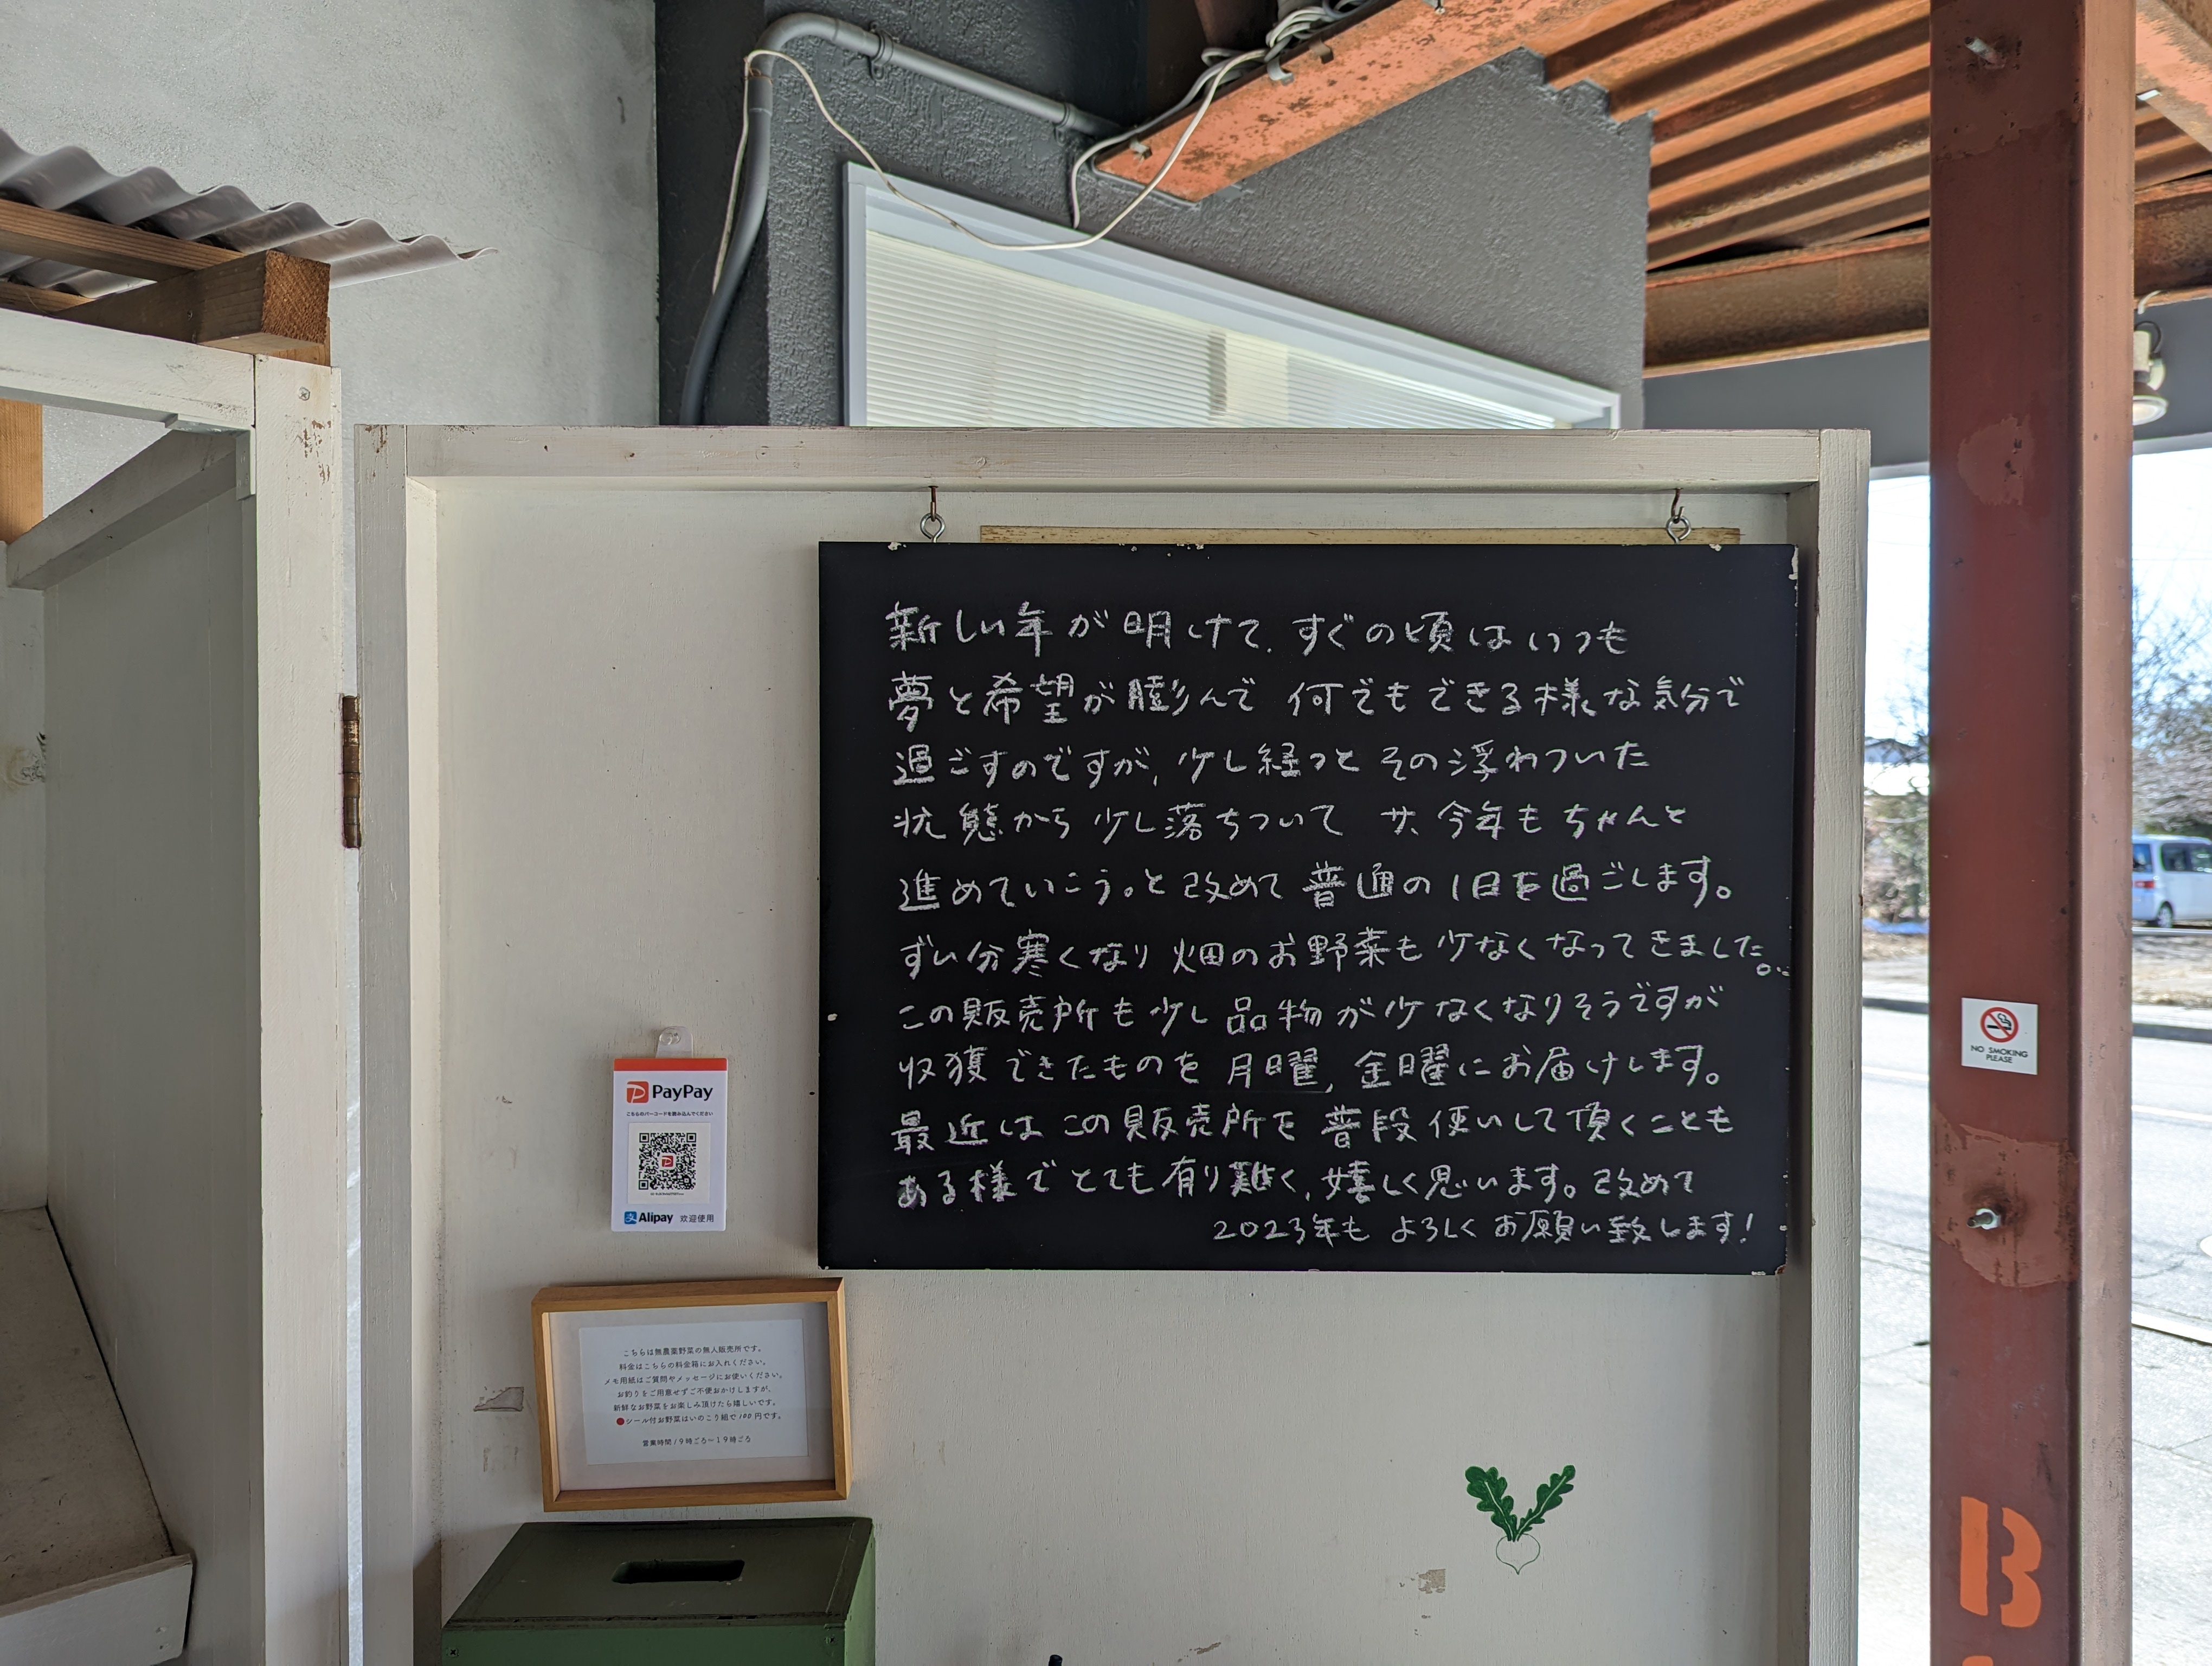 新しい年が明けて、すぐの頃はいつも
夢と希望が膨らんで 何でもできる様な気分で
過ごすのですが、少し経つと その浮わついた
状態から 少し落ちついて サ、今年もちゃんと
進めていこう。と 改めて 普通の1日を過ごします。
ずい分寒くなり 畑のお野菜も 少なくなってきました。
この販売所も少し品物が少なくなりそうですが
収獲できたものを 月曜、金曜にお届けします。
最近は この販売所を 普段使いして頂くことも
ある様で とても有り難く、嬉しく思います。改めて
2023年も よろしく お願い致します!
PayPay
こちらのバーコードを読み込んでください
Alipay 欢迎使用
こちらは無農薬野菜の無人販売所です。
料金はこちらの料金箱にお入れください。
メモ用紙はご質問やメッセージにお使いください。
お釣りをご用意せずご不便おかけしますが、
新鮮なお野菜をお楽しみ頂けたら嬉しいです。
●シール付お野菜はいのこり組で100円です。
営業時間/9時ごろ〜19時ごろ
NO SMOKING
PLEASE
B